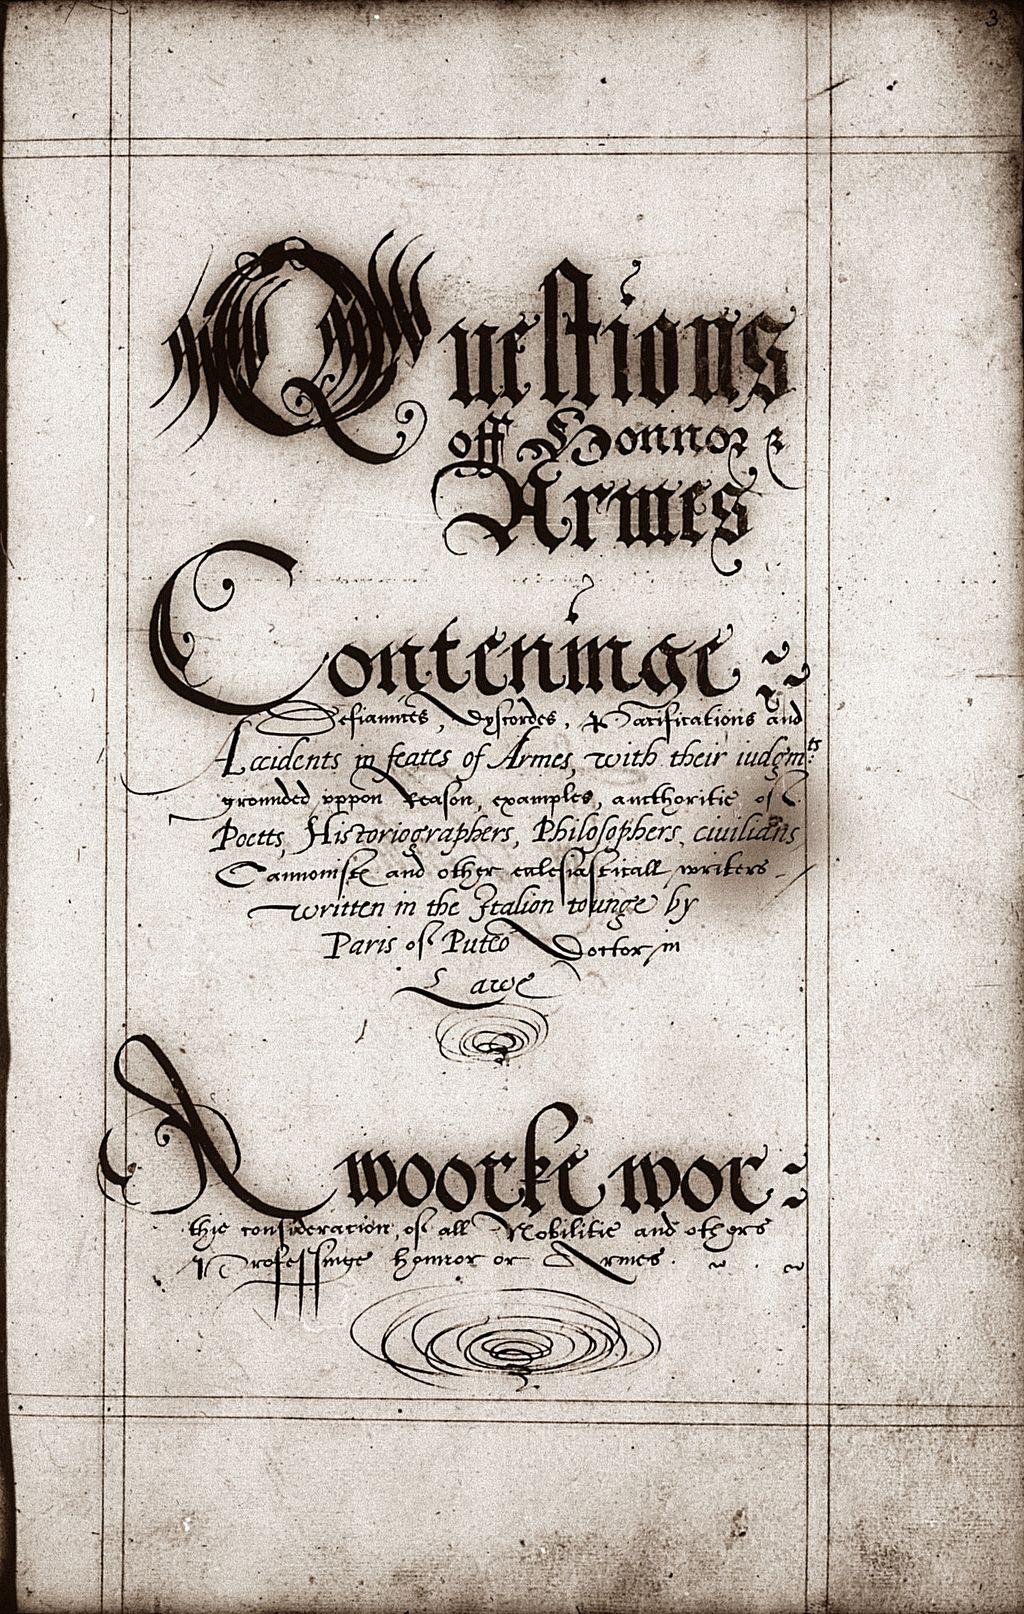 3
Questions
off Honnor &
Armes
Conteninge
Defiannces, dyscordes, Pacifications and
Accidents in feates of Armes, with their iudgmts:
grounded vppon Reason, examples, aucthoritie of
Poetts, Historiographers, Philosophers, civilians,
Cannonistes and other ecclesiasticall writers
written in the Italion tounge by
Paris of Puteo Doctor in
Lawe
A woorke wor
thie consideration, of all Nobilitie and others
Professinge honnor or Armes.